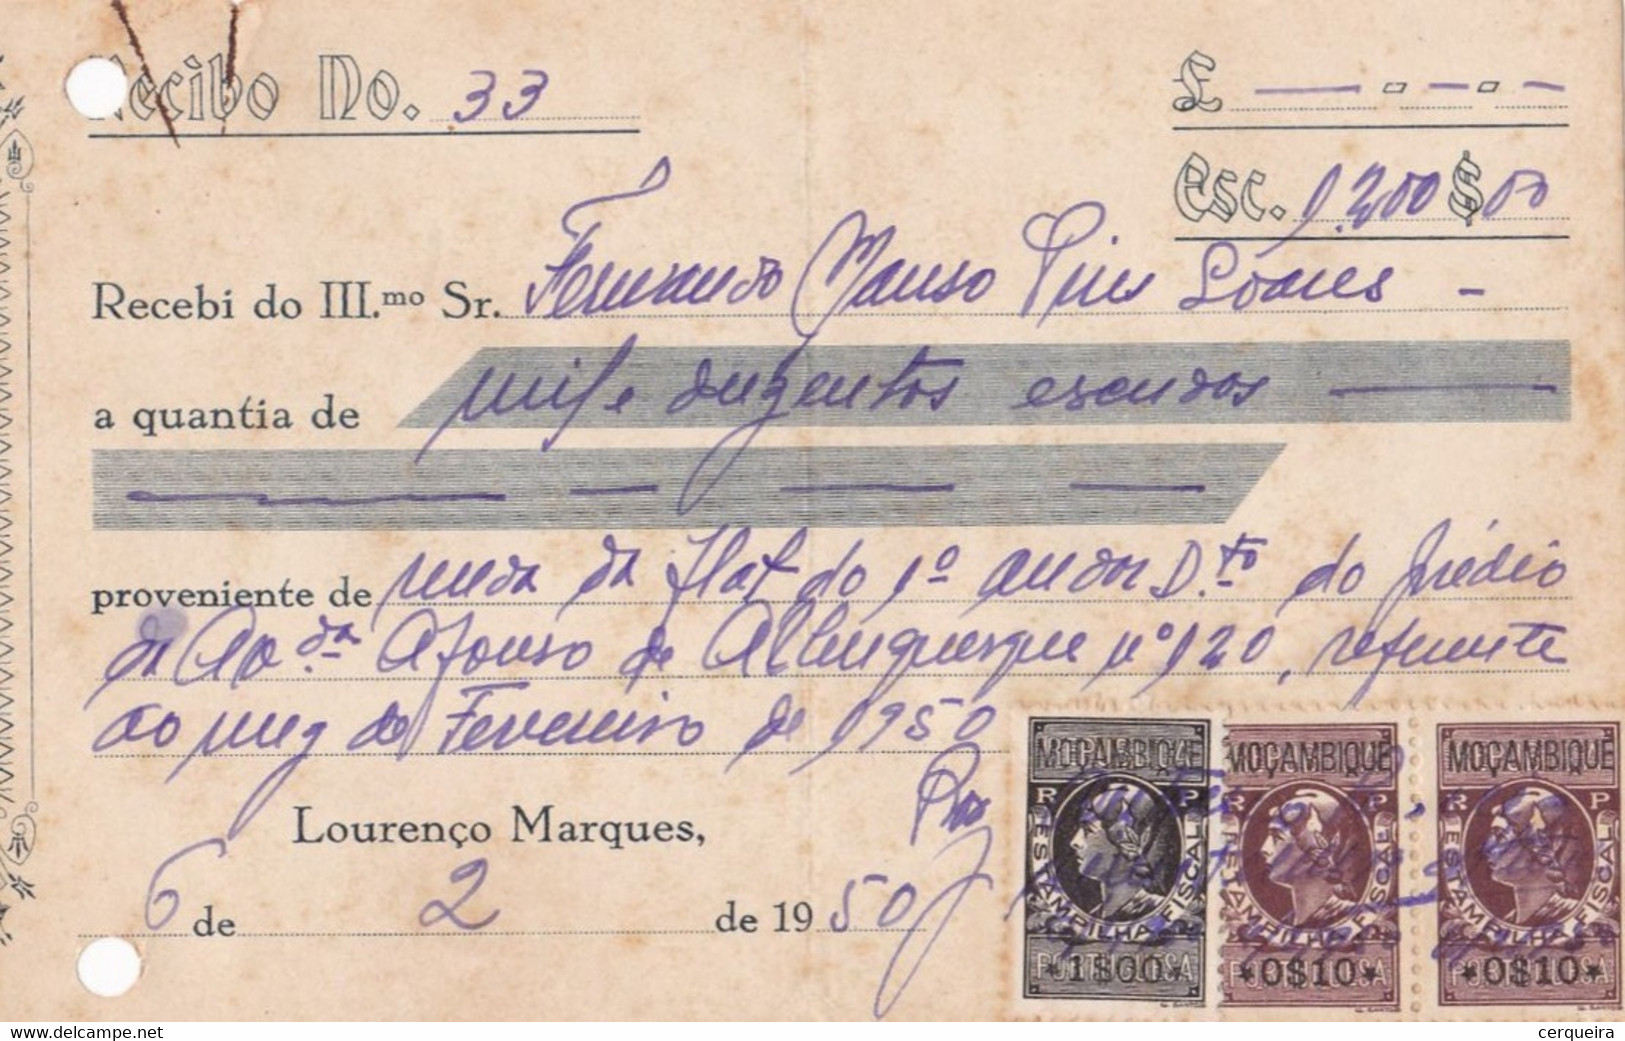 Recibo No. 33
£ — o — o —
Esc. 1.200$00
Recebi do III.mo Sr. Fernando Manso Pires Soares —
a quantia de mil e duzentos escudos
proveniente de renda da flat do 1º andar D.to do prédio
da Av da Afonso de Albuquerque nº 120, referente
ao mez de Fevereiro de 1950
Lourenço Marques,
6 de 2 de 1950
MOÇAMBIQUE MOÇAMBIQUE MOÇAMBIQUE
R P R P R P
ESTAMPILHA FISCAL ESTAMPILHA FISCAL ESTAMPILHA FISCAL
1$00 0$10 0$10
delcampe.net
cerqueira